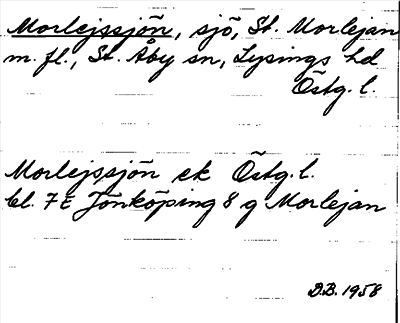 Morlejssjön, sjö, St. Morlejan
m. fl., St. Åby sn, Lysings hd
Östg. l.
Morlejssjön ek Östg. l.
bl. 7E Jönköping 8 g Morlejan
D.B. 1958